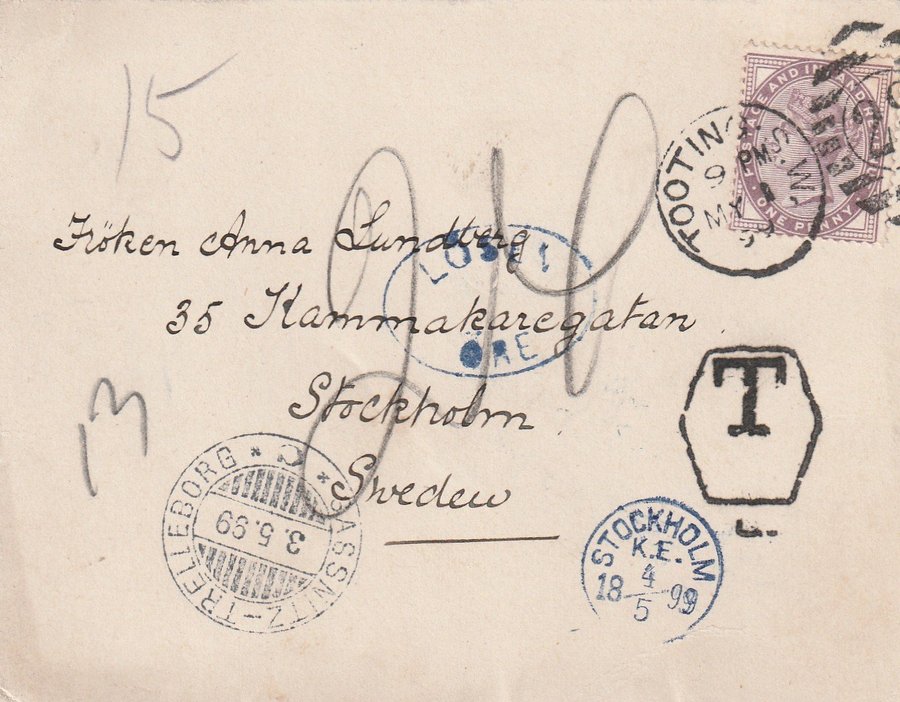 15
POSTAGE AND INLAND
ONE PENNY
TOOTING. S.W.
9 PM
MY 1
99
Fröken Anna Lundberg
LÖSEN
ÖRE
35 Kammakaregatan
Stockholm
Sweden
T
13
SASSNITZ-TRELLEBORG * C *
3.5.99
STOCKHOLM
K.E.
4
18 99
5